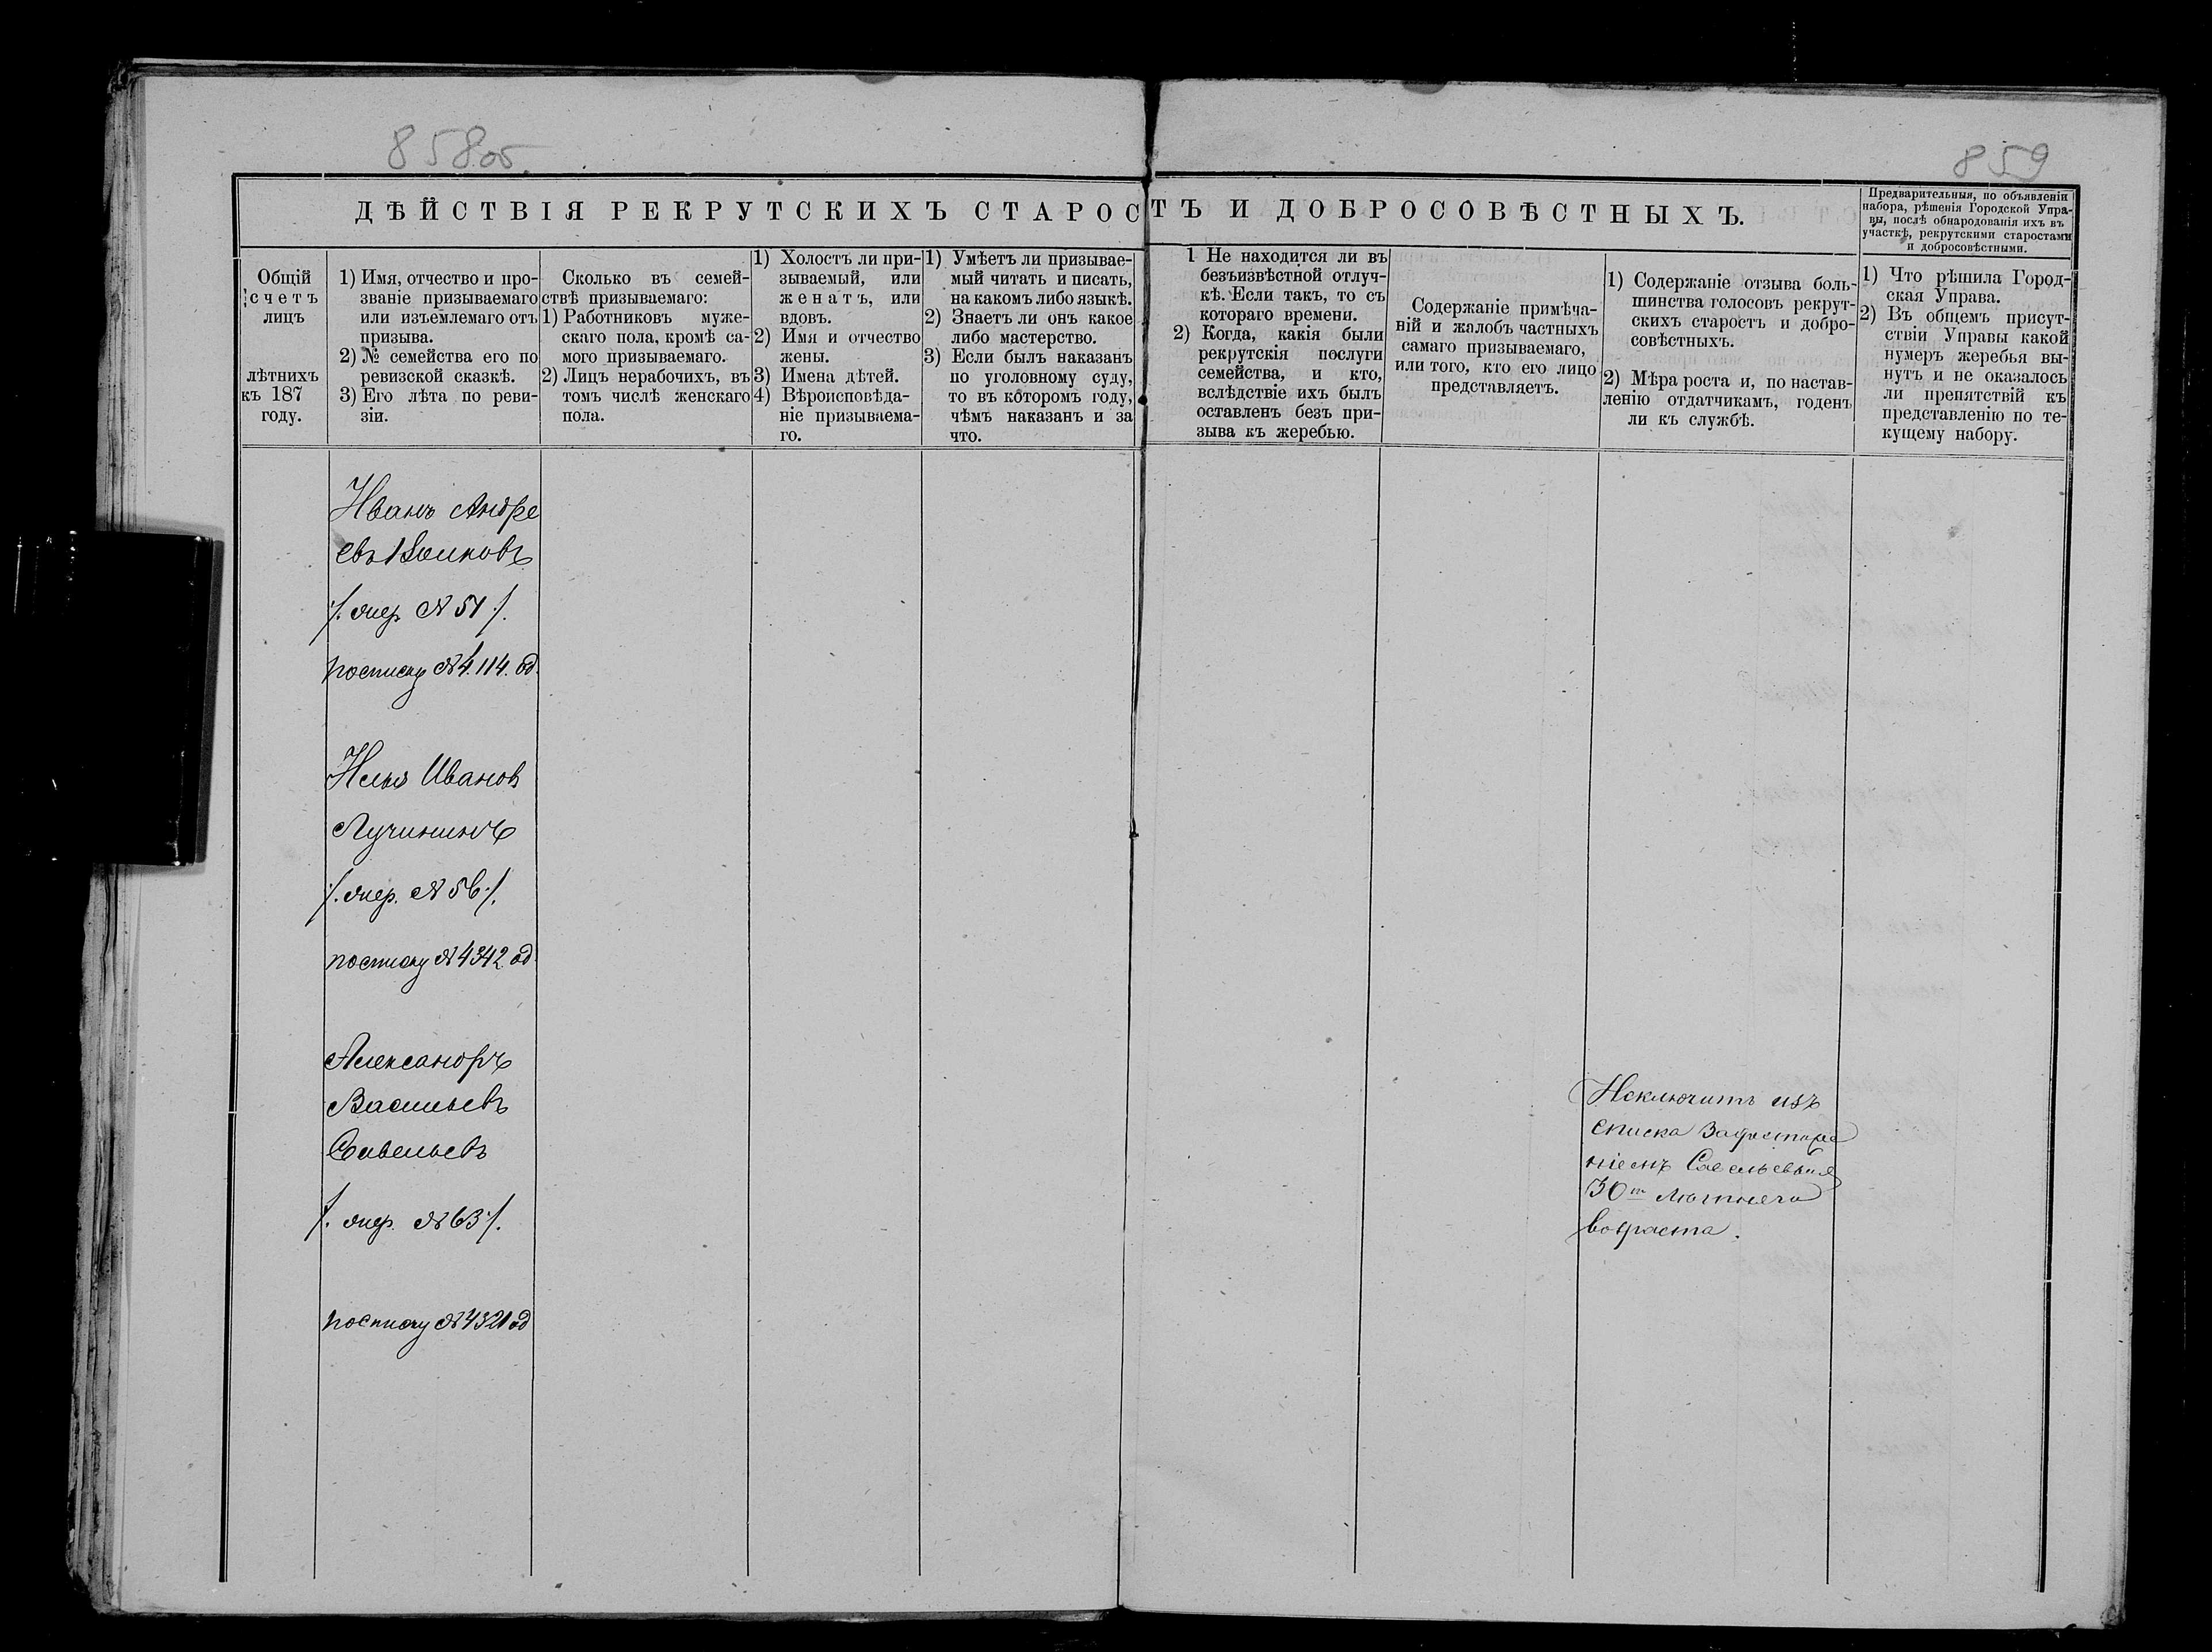 858 об.
859
ДѢЙСТВІЯ РЕКРУТСКИХЪ СТАРОСТЪ И ДОБРОСОВѢСТНЫХЪ.
Предварительныя, по объявленіи
набора, рѣшенія Городской Упра-
вы, послѣ обнародованія ихъ въ
участкѣ, рекрутскими старостами
и добросовѣстными.
Общій
счетъ
лицъ
лѣтнихъ
къ 187
году.
1) Имя, отчество и про-
званіе призываемаго
или изъемлемаго отъ
призыва.
2) № семейства его по
ревизской сказкѣ.
3) Его лѣта по реви-
зіи.
Сколько въ семей-
ствѣ призываемаго:
1) Работниковъ муже-
скаго пола, кромѣ са-
мого призываемаго.
2) Лицъ нерабочихъ, въ
томъ числѣ женскаго
пола.
1) Холостъ ли при-
зываемый, или
женатъ, или
вдовъ.
2) Имя и отчество
жены.
3) Имена дѣтей.
4) Вѣроисповѣда-
ніе призываема-
го.
1) Умѣетъ ли призывае-
мый читать и писать,
на какомъ либо языкѣ.
2) Знаетъ ли онъ какое
либо мастерство.
3) Если былъ наказанъ
по уголовному суду,
то въ которомъ году,
чѣмъ наказанъ и за
что.
1 Не находится ли въ
безъизвѣстной отлуч-
кѣ. Если такъ, то съ
котораго времени.
2) Когда, какія были
рекрутскія послуги
семейства, и кто,
вслѣдствіе ихъ былъ
оставленъ безъ при-
зыва къ жеребью.
Содержаніе примѣча-
ній и жалобъ частныхъ
самаго призываемаго,
или того, кто его лицо
представляетъ.
1) Содержаніе отзыва боль-
шинства голосовъ рекрут-
скихъ старостъ и добро-
совѣстныхъ.
2) Мѣра роста и, по настав-
ленію отдатчикамъ, годенъ
ли къ службѣ.
1) Что рѣшила Город-
ская Управа.
2) Въ общемъ присут-
ствіи Управы какой
нумеръ жеребья вы-
нутъ и не оказалось
ли препятствій къ
представленію по те-
кущему набору.
Иванъ Андре
евъ
№ 51
по списку № 4.114. од.
Илья Иванов
Лучининъ
№ 56
по списку № 4342 од
Александръ
Васильевъ
Савельевъ
№ 63
по списку № 4321 од
Исключить изъ
списка
30 лѣтняго
возраста.